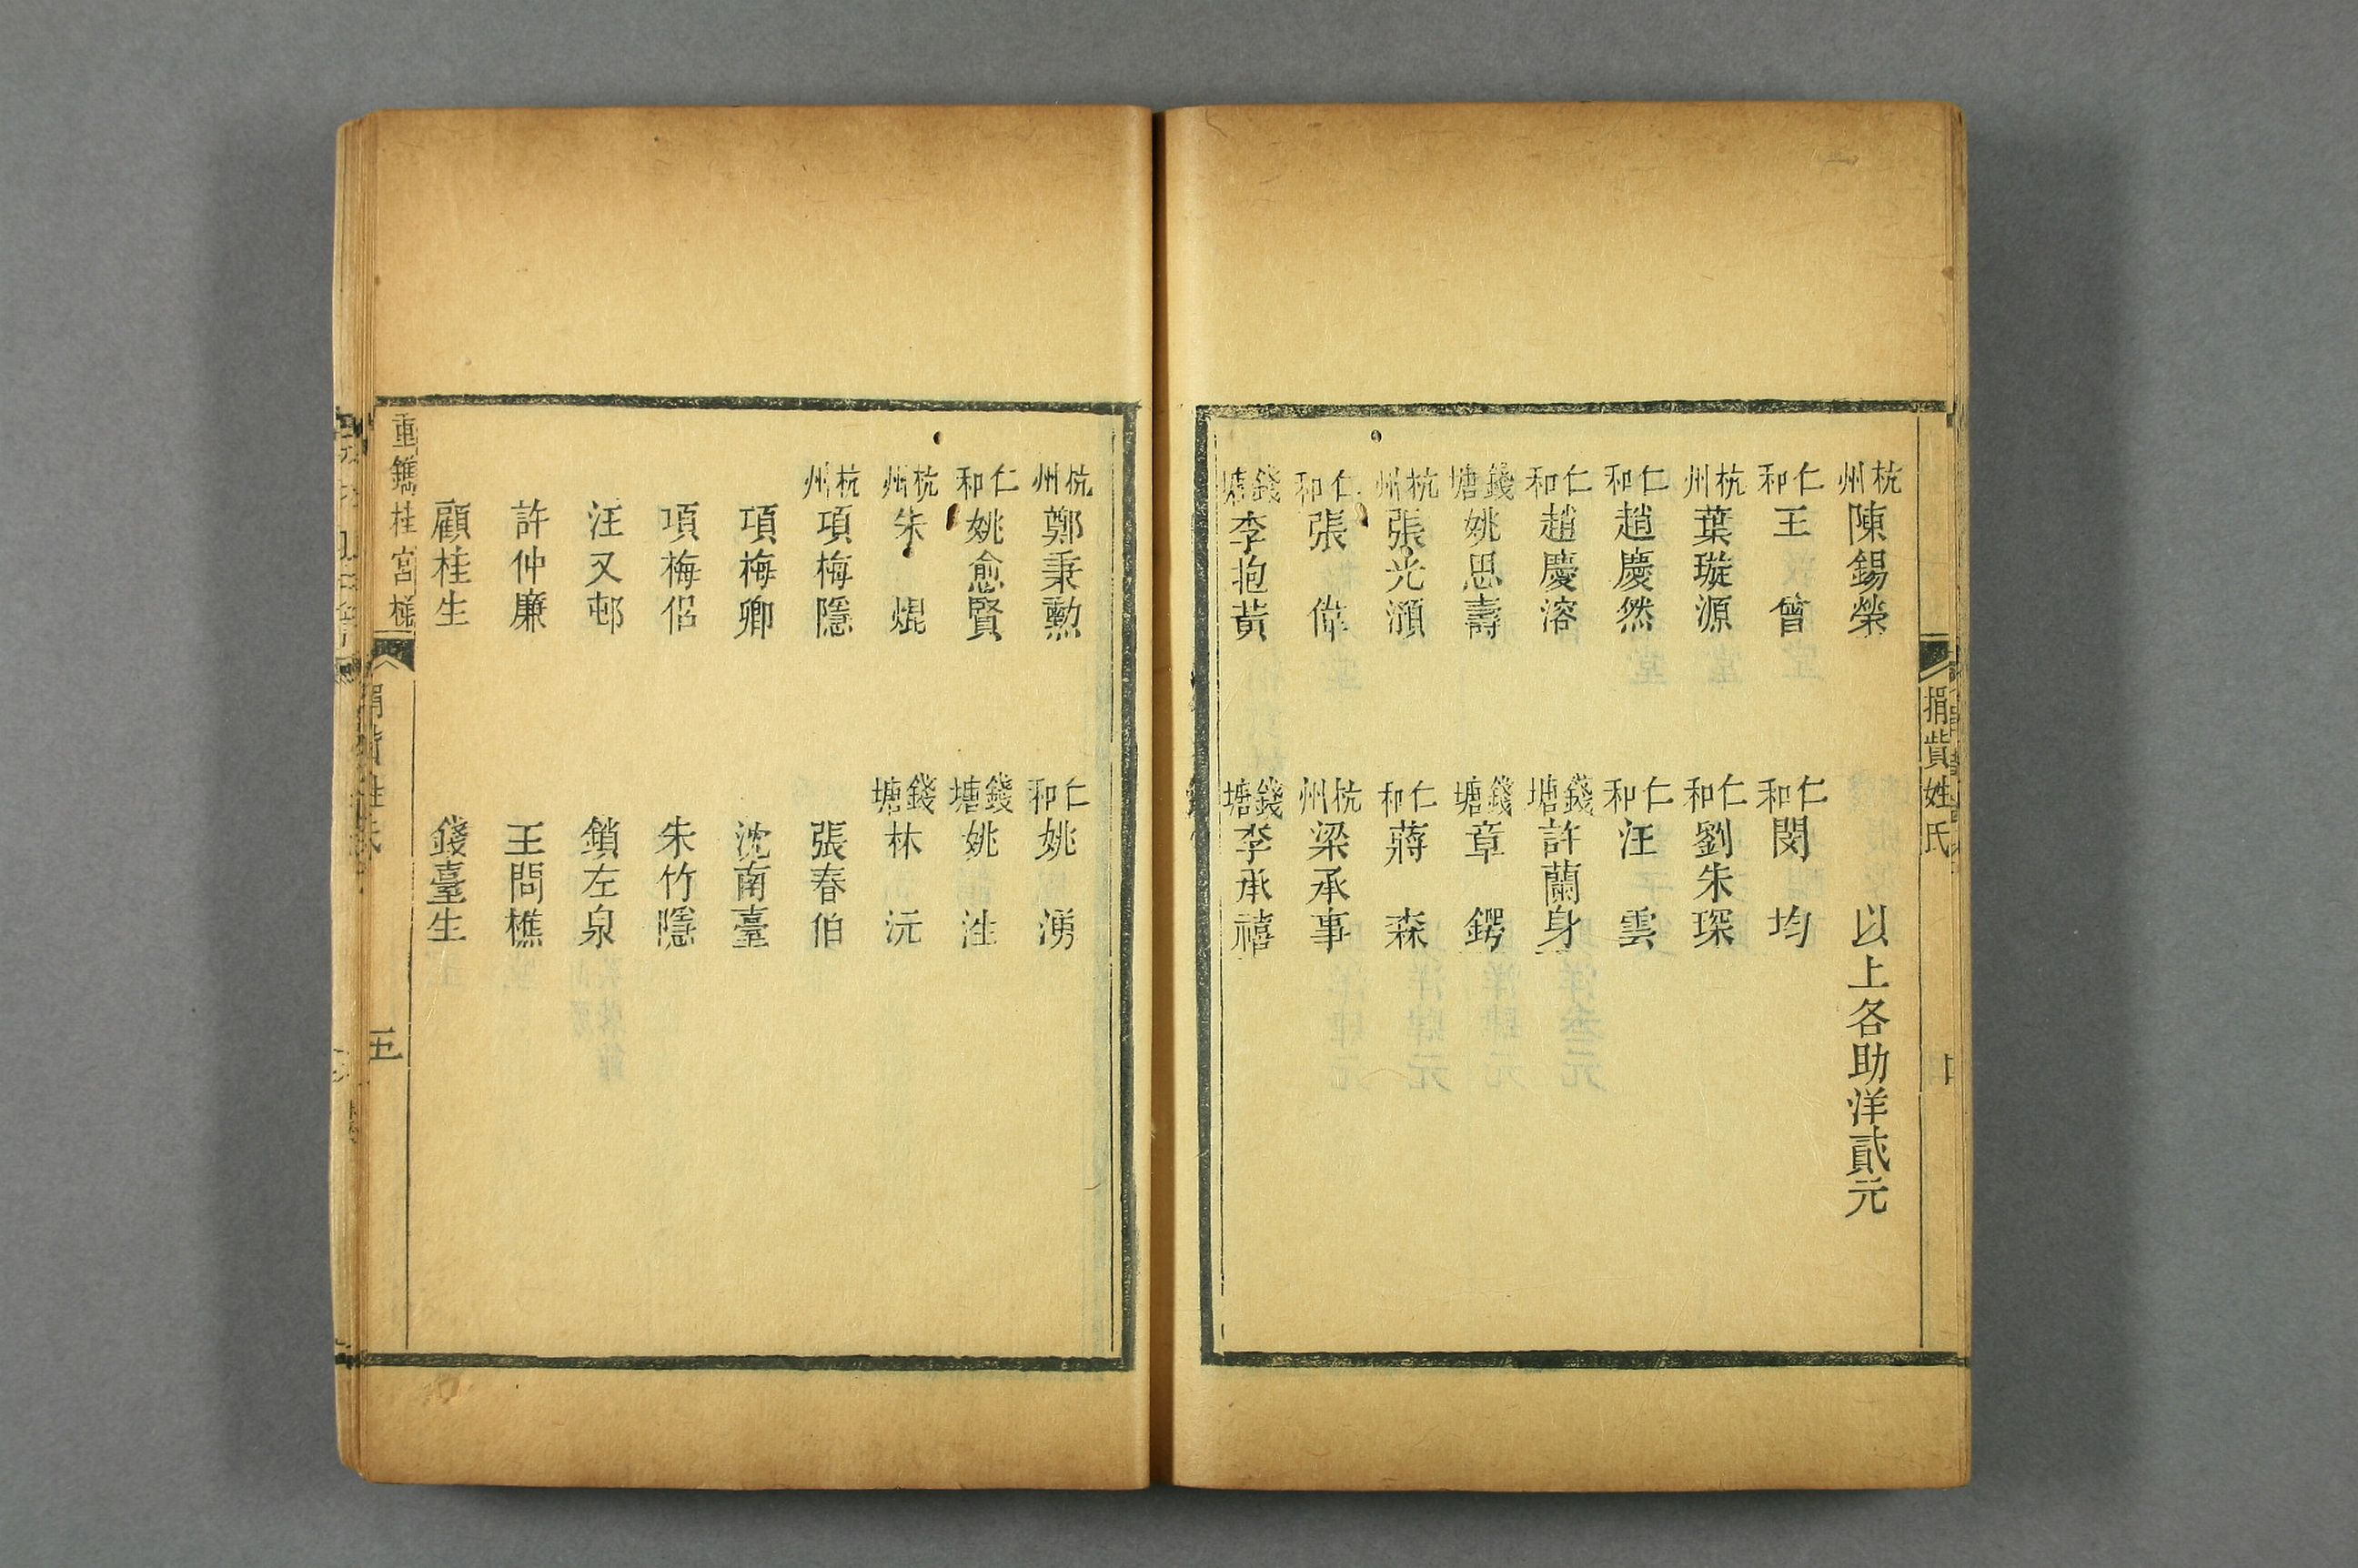 捐貲姓氏
杭州 陳錫榮 以上各助洋貳元
仁和 王 曾 仁和 閔 均
杭州 葉璇源 仁和 劉朱琛
仁和 趙慶然 仁和 汪 雲
仁和 趙慶溶 錢塘 許蘭身
錢塘 姚思壽 錢塘 章 鍔
杭州 張光澦 仁和 蔣 森
仁和 張 偉 杭州 梁承事
錢塘 李抱黃 錢塘 李承禧
杭州 鄭秉勳 仁和 姚 湧
仁和 姚愈賢 錢塘 姚 泩
杭州 朱 焜 錢塘 林 沅
杭州 項梅隱 張春伯
項梅卿 沈南臺
項梅侶 朱竹隱
汪又邨 鎖左泉
許仲廉 王問樵
顧桂生 錢臺生
重鐫桂宮梯 捐貲姓氏 五